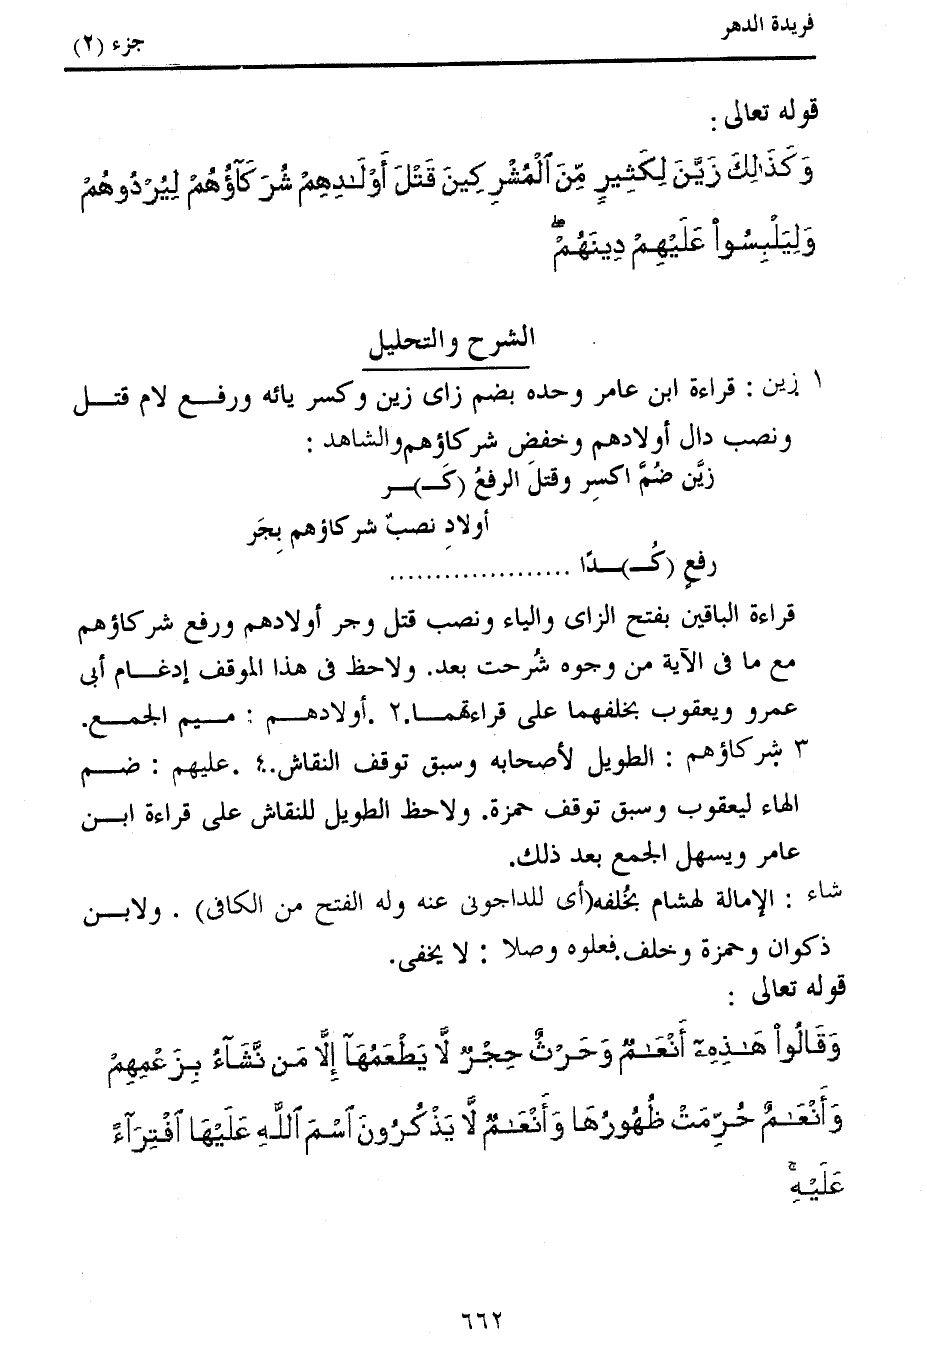 فريدة الدهر
جزء (٢)
قوله تعالى :
وَكَذَٰلِكَ زَيَّنَ لِكَثِيرٍ مِّنَ ٱلْمُشْرِكِينَ قَتْلَ أَوْلَٰدِهِمْ شُرَكَآؤُهُمْ لِيُرْدُوهُمْ
وَلِيَلْبِسُوا۟ عَلَيْهِمْ دِينَهُمْ ۖ
الشرح والتحليل
١ زين : قراءة ابن عامر وحده بضم زاى زين وكسر يائه ورفـــع لام قتـــل
ونصب دال أولادهم وخفض شركاؤهم والشاهد :
زيَّن ضُمَّ اكسِر وقتلَ الرفعُ (كَـــ)ـــر
أولادِ نصبٌ شركاؤهم بِجَر
رفعٍ (كُـــ)ـــدًا ...................
قراءة الباقين بفتح الزاى والياء ونصب قتل وجر أولادهم ورفع شركاؤهم
مع ما فى الآية من وجوه شُرحت بعد. ولاحظ فى هذا الموقف إدغـــام أبى
عمرو ويعقوب بخلفهما على قراءتهمـــا.٢ .أولادهـــم : ميـــم الجمـــع.
٣ شركاؤهم : الطويل لأصحابه وسبق توقف النقاش.٤ .عليهم : ضـــم
الهاء ليعقوب وسبق توقف حمزة. ولاحظ الطويل للنقاش على قراءة ابـــن
عامر ويسهل الجمع بعد ذلك.
شاء : الإمالة لهشام بخُلفه(أى للداجونى عنه وله الفتح من الكافى) . ولابـــن
ذكوان وحمزة وخلف.فعلوه وصلا : لا يخفى.
قوله تعالى :
وَقَالُوا۟ هَٰذِهِۦٓ أَنْعَٰمٌ وَحَرْثٌ حِجْرٌ لَّا يَطْعَمُهَآ إِلَّا مَن نَّشَآءُ بِزَعْمِهِمْ
وَأَنْعَٰمٌ حُرِّمَتْ ظُهُورُهَا وَأَنْعَٰمٌ لَّا يَذْكُرُونَ ٱسْمَ ٱللَّهِ عَلَيْهَا ٱفْتِرَآءً
عَلَيْهِ ۚ
٦٦٢